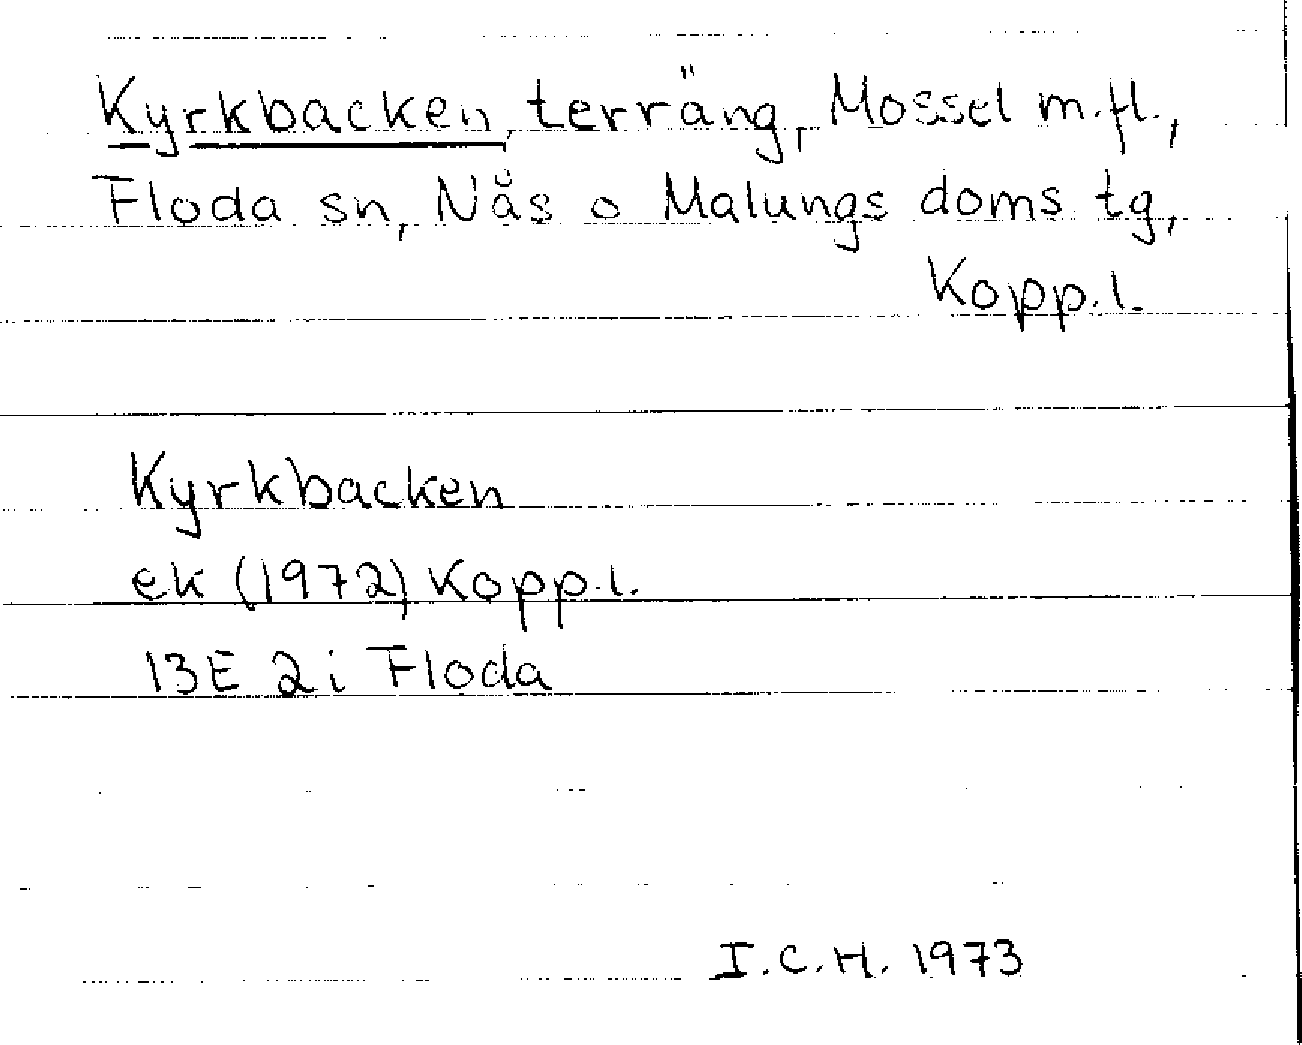 Kyrkbacken, terräng, Mossel m.fl.,
Floda sn, Nås o Malungs doms tg,
Kopp.l.
Kyrkbacken
ek (1972) Kopp.l.
13E 2i Floda
I.C.H. 1973